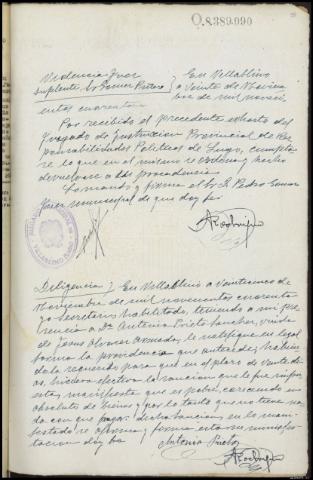 O.8.389.090
Providencia Juez
Suplente Sr Gomez Prieto
En Villablino
a veinte de Noviem
bre de mil noveci
entos cuarenta.
Por recibido el precedente exhorto del
Juzgado de Instruccion Provincial de Res
ponsabilidades Politicas de Lugo, cumpla
se lo que en el mismo se ordena y hecho
devuelvase a su procedencia.
Lo mando y firma el Sr D. Pedro Gomez
Juez municipal de que doy fe
Diligencia; En Villablino a veinticinco de
Noviembre de mil novecientos cuarenta
yo Secretario habilitado, teniendo a mi pre
sencia a Dª Antonia Prieto Sanchez, viuda
de Jesus Alvarez, le notifique en legal
forma la providencia que antecede, habien
dola requerido para que en el plazo de veinte di
as, hiciera efectiva la sancion que le fue impu
esta, manifiesta que es pobre, careciendo en
absoluto de bienes y por lo tanto que no tiene na
da con que pagar dicha sancion, en lo mani
festado se afirma y firma esta su manifes
tacion doy fe
Antonia Prieto
ARodriguez